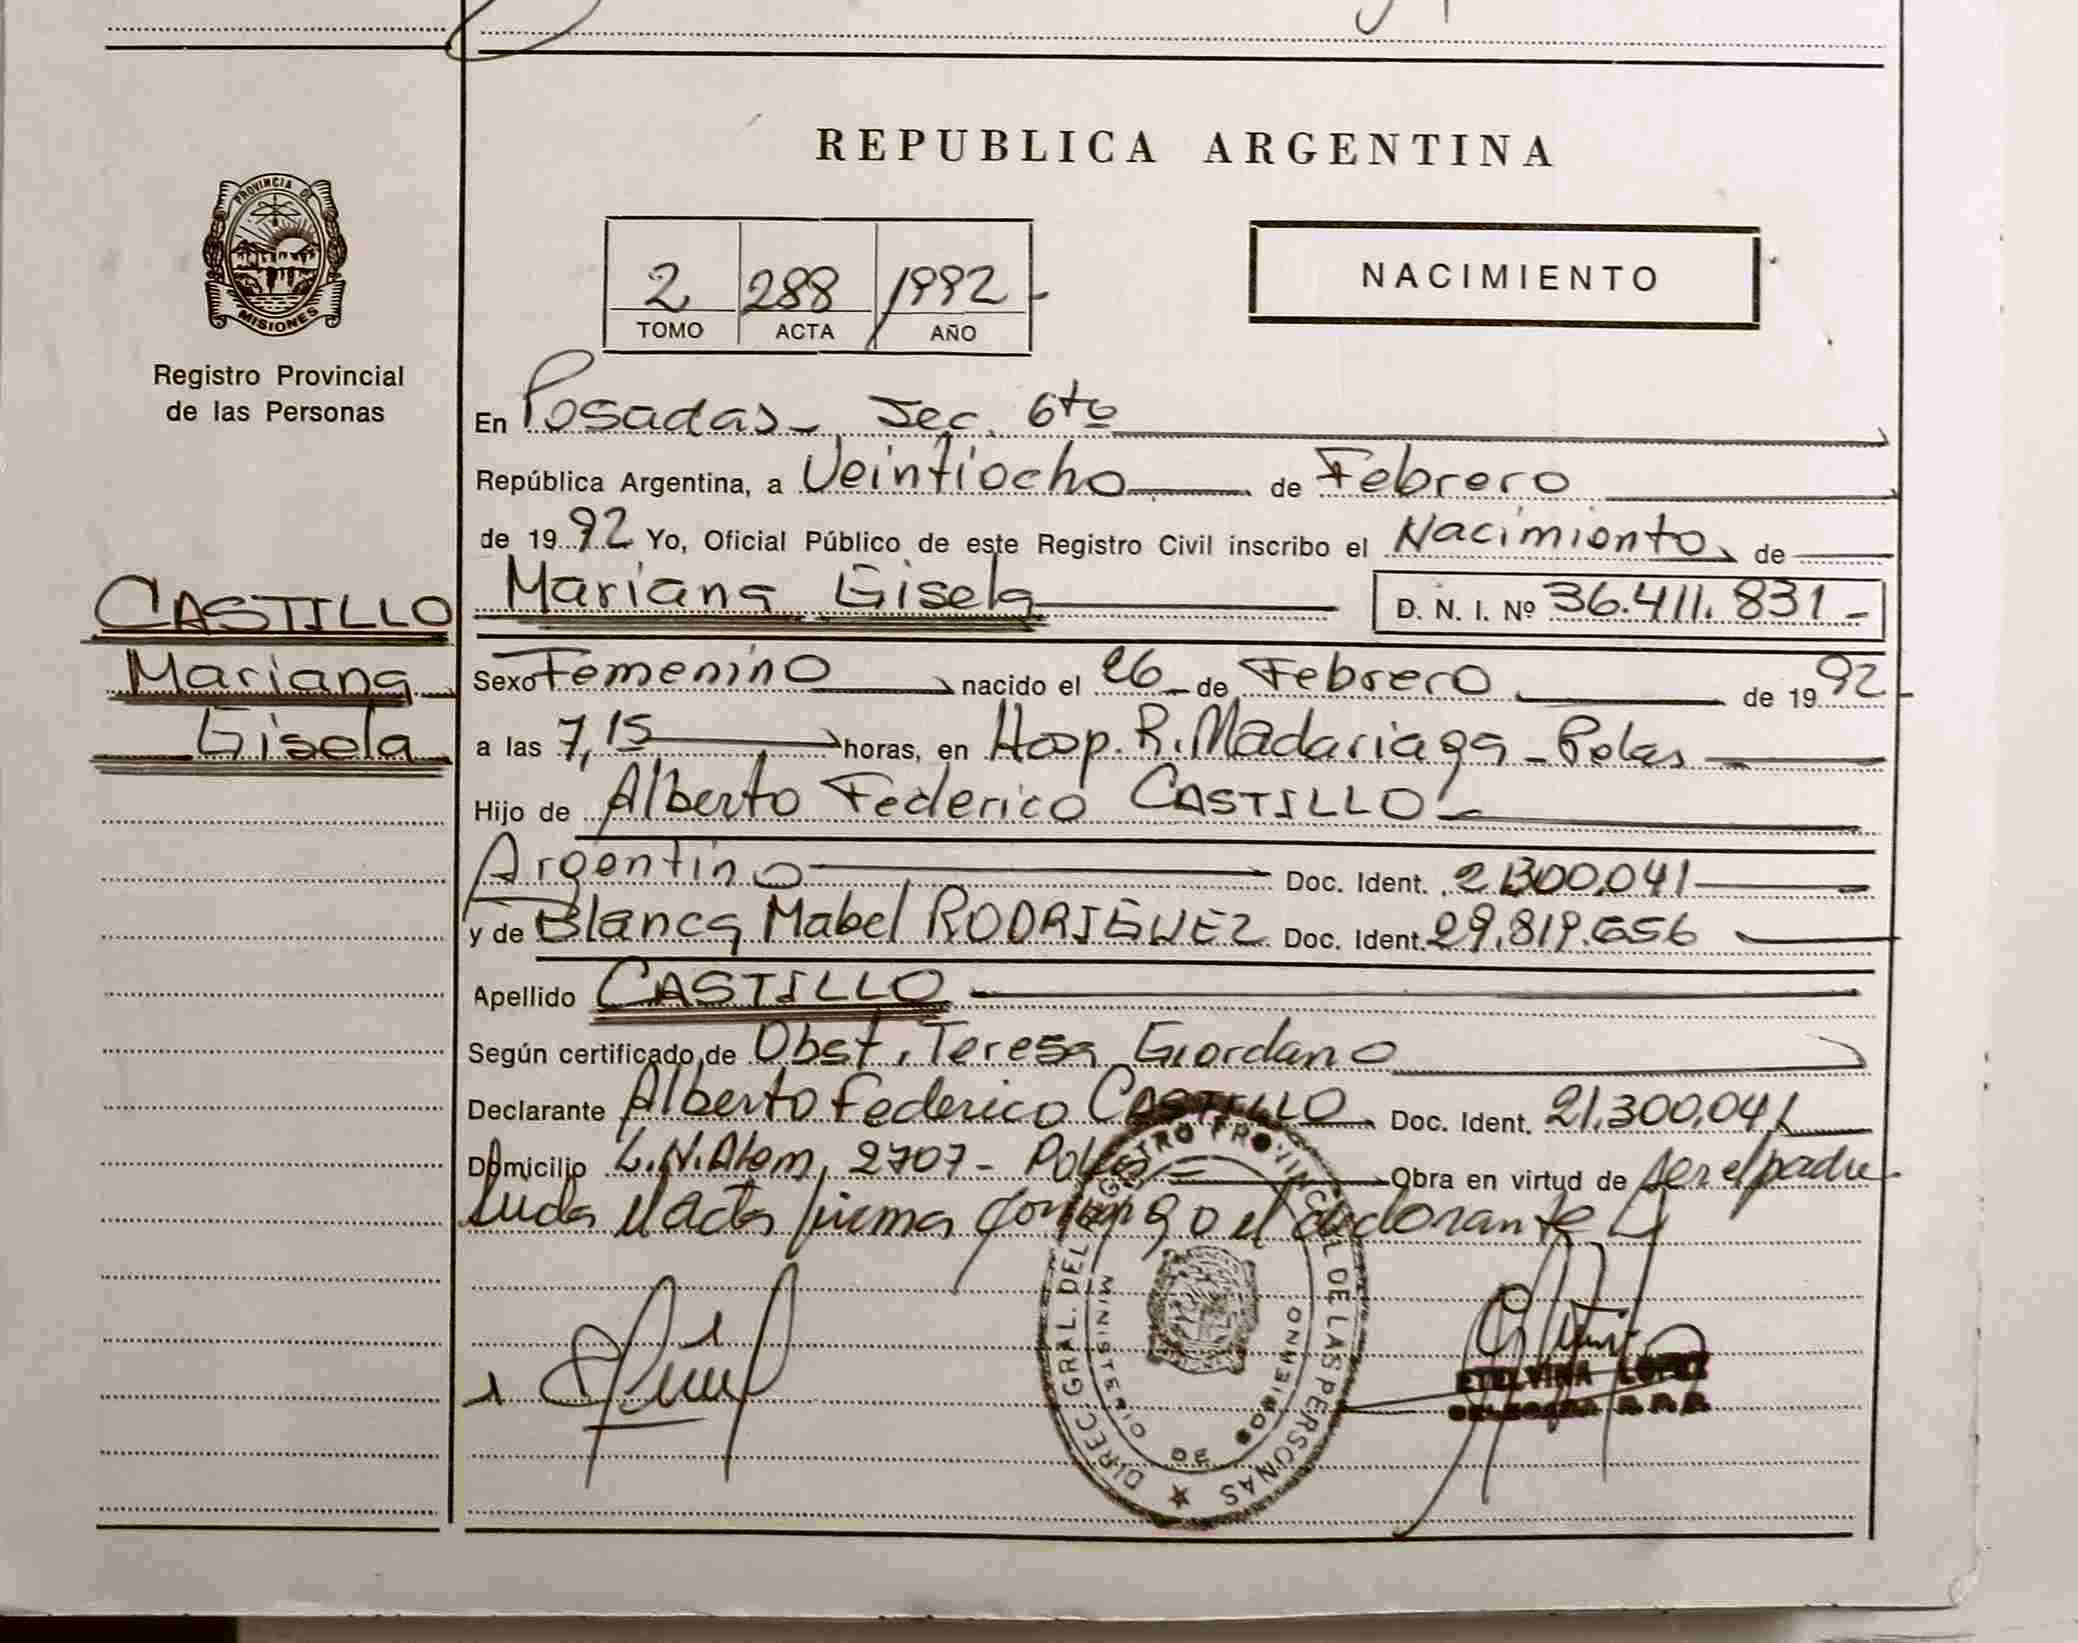 REPUBLICA ARGENTINA
PROVINCIA DE
MISIONES
Registro Provincial
de las Personas
2 288 1992
TOMO ACTA AÑO
NACIMIENTO
En Posadas Sec. 6ta
República Argentina, a Veintiocho de Febrero
de 1992 Yo, Oficial Público de este Registro Civil inscribo el Nacimiento de
CASTILLO
Mariana
Gisela
Mariana Gisela D. N. I. Nº 36.411.831
Sexo Femenino nacido el 26 de Febrero de 1992
a las 7,15 horas, en Hosp. R. Madariaga - Pdas
Hijo de Alberto Federico CASTILLO
Argentino Doc. Ident. 21300.041
y de Blanca Mabel RODRIGUEZ Doc. Ident. 29.819.656
Apellido CASTILLO
Según certificado de Obst. Teresa Giordano
Declarante Alberto Federico CASTILLO Doc. Ident. 21.300.041
Domicilio L.N. Alem, 2707 - Obra en virtud de ser el padre
el acta firma conmigo el declarante
DIREC. GRAL. DEL REGISTRO PROVINCIAL DE LAS PERSONAS
MINISTERIO DE GOBIERNO
ETELVINA LOPEZ